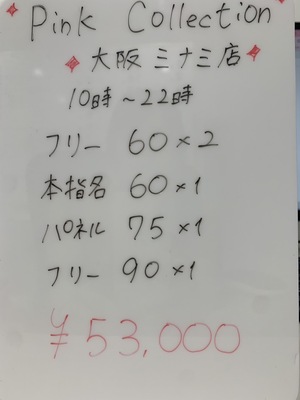 Pink Collection
大阪ミナミ店
10時~22時
フリー 60×2
本指名 60×1
パネル 75×1
フリー 90×1
¥53,000